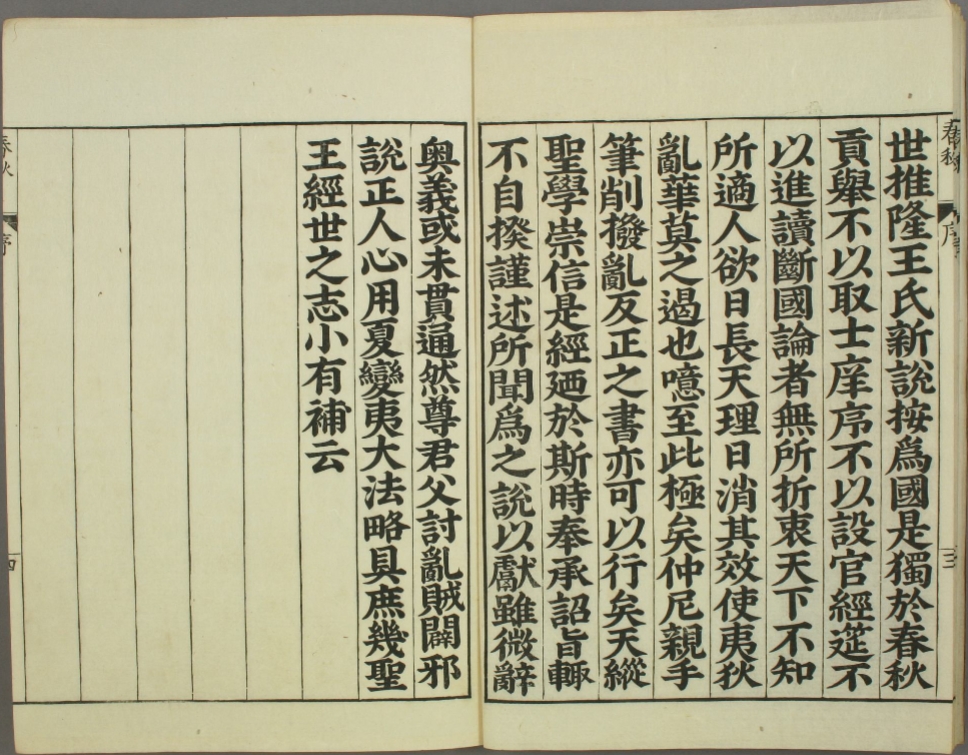 春秋
序
三
世推隆王氏新說按爲國是獨於春秋
貢舉不以取士庠序不以設官經筵不
以進讀斷國論者無所折衷天下不知
所適人欲日長天理日消其效使夷狄
亂華莫之遏也噫至此極矣仲尼親手
筆削撥亂反正之書亦可以行矣天縱
聖學崇信是經廼於斯時奉承詔旨輙
不自揆謹述所聞爲之說以獻雖微辭
奥義或未貫通然尊君父討亂賊闢邪
說正人心用夏變夷大法略具庶幾聖
王經世之志小有補云
春秋
序
四